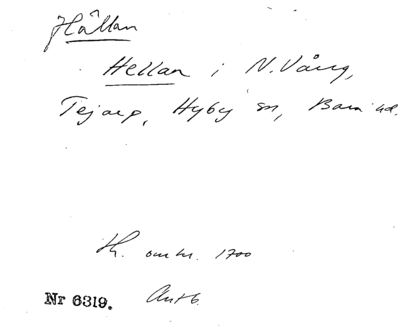 Hållan
Hellan i N. Vång,
Tejarp, Hyby sn, Bara hd.
omkr. 1700
Nr 6319.